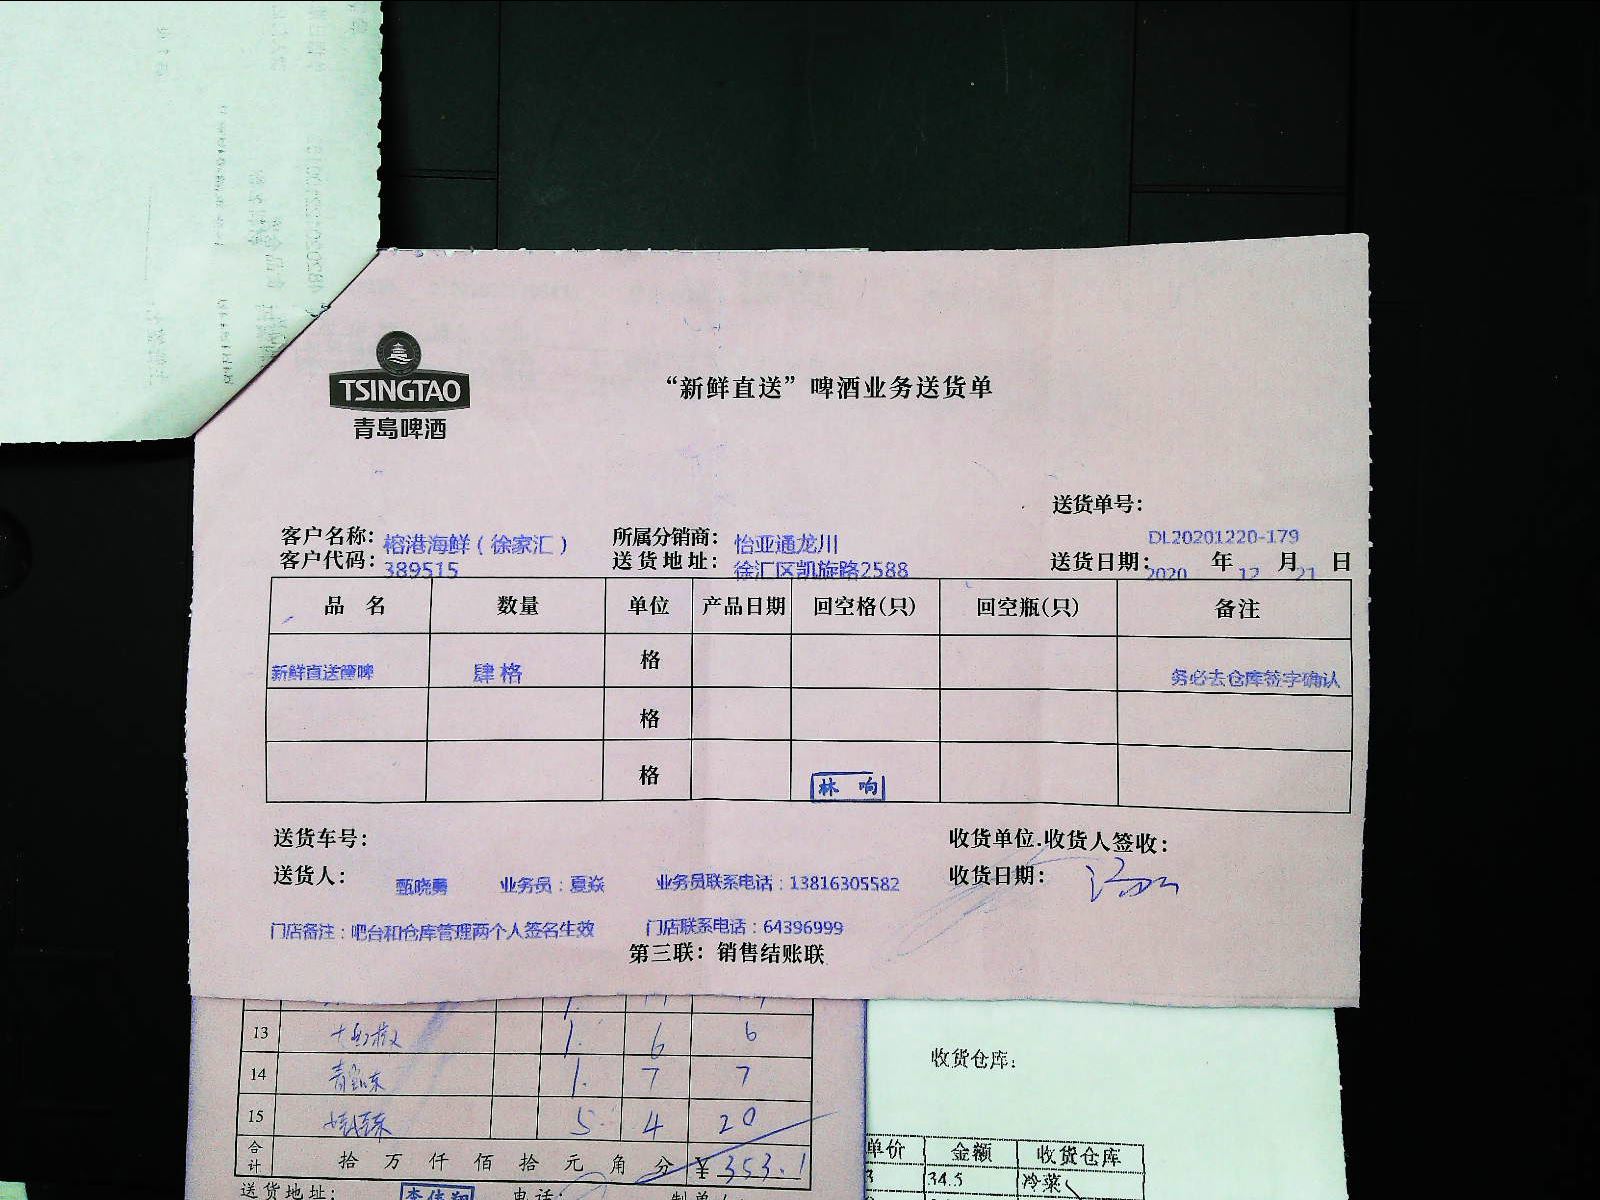 TSINGTAO
青岛啤酒
“新鲜直送”啤酒业务送货单
送货单号：
DL20201220-179
客户名称：榕港海鲜（徐家汇）
所属分销商：怡亚通龙川
客户代码：389515
送货地址：徐汇区凯旋路2588
送货日期：2020 年 12 月 21 日
品 名 数量 单位 产品日期 回空格(只) 回空瓶(只) 备注
新鲜直送 肆格 格 务必去仓库签字确认
格
格
林 响
送货车号：
收货单位.收货人签收：
送货人：甄晓勇 业务员：夏焱 业务员联系电话：13816305582
收货日期：
门店备注：吧台和仓库管理两个人签名生效 门店联系电话：64396999
第三联：销售结账联
13 1. 6 6
14 1. 7 7
15 5 4 20
合计 拾 万 仟 佰 拾 元 角 分 ¥353.1
送货地址： 电话：
收货仓库：
单价 金额 收货仓库
34.5 冷菜